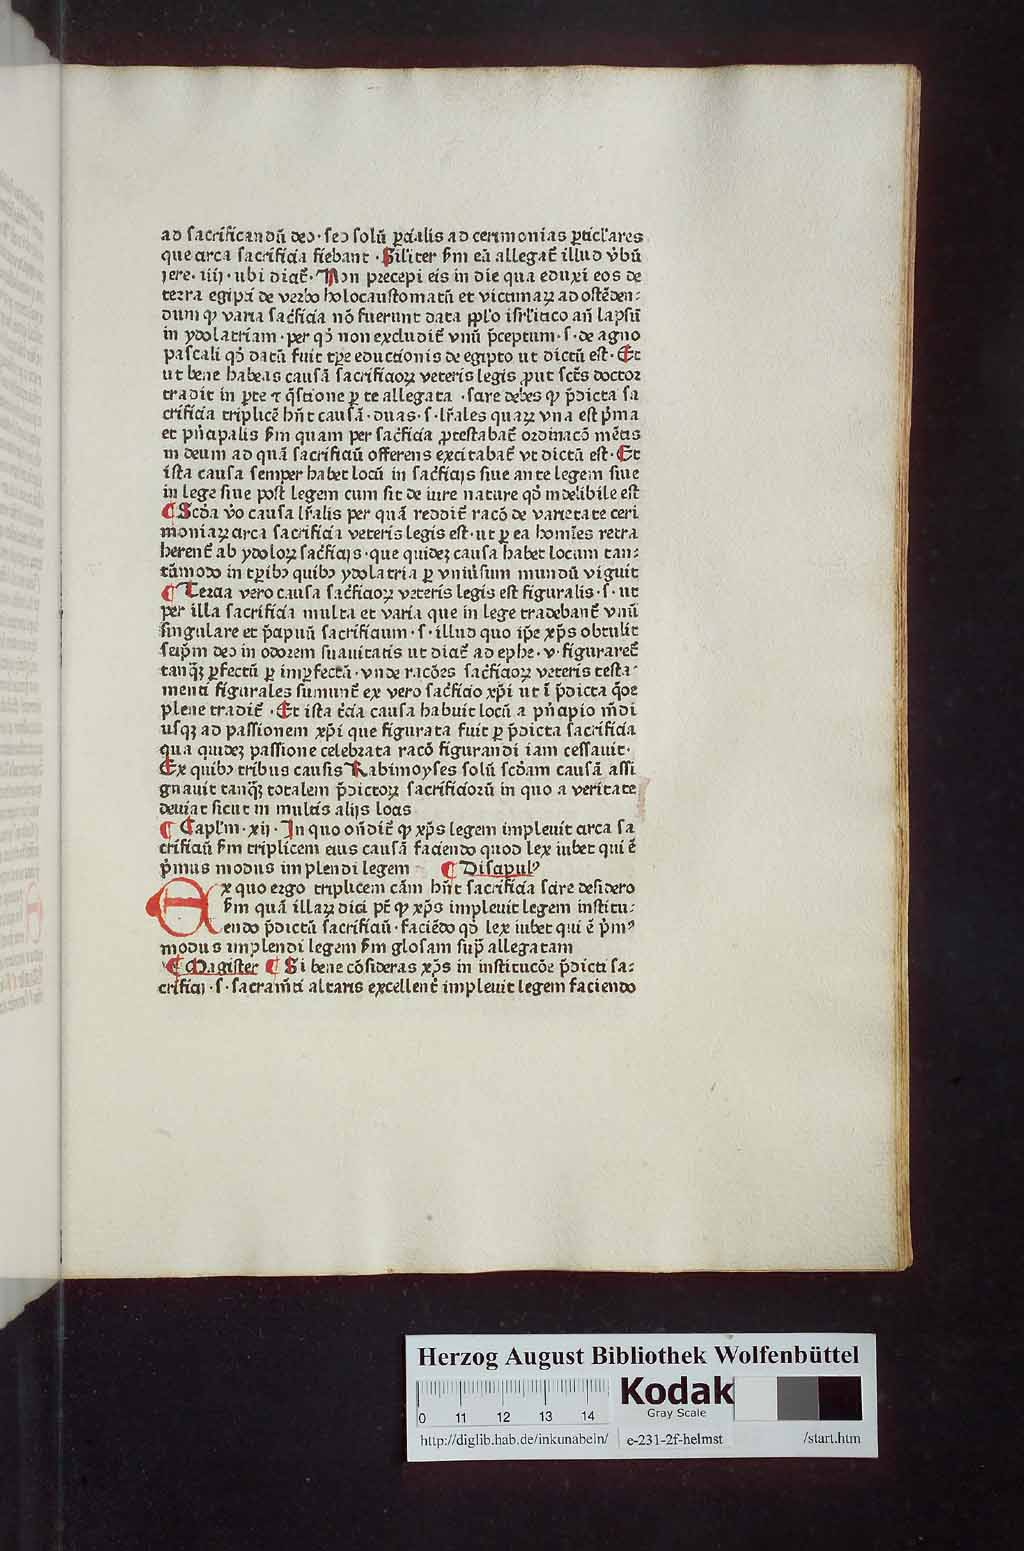 ad sacrificandū deo · sed solū ꝑcialis ad cerimonias ꝑticl'ares
que circa sacrificia fiebant · Siĺiter ẜm eā allegat᷑ illud v̇bū
Jere · iiij · ubi dicit᷑ · Non precepi eis in die qua eduxi eos de
terra egipti de verbo holocaustomatū et victimaꝝ ad ostēden-
dum ꝙ varia sac̓ficia nō fuerunt data ꝓpl'o isrl'itico an̄ lapsū
in ydolatriam · per qd̓ non excludit᷑ vnū p̄ceptum · s · de agno
pascali qd̓ datū fuit tꝑe eductionis de egipto ut dictū est · Et
ut bene habeas causā sacrificioꝝ veteris legis ꝓut sct̄s doctor
tradit in ꝑte ⁊ q̄stione ꝑ te allegata · scire debes ꝙ p̄dicta sa
crificia triplicē hn̄t causā · duas · s · lr̄ales quaꝝ vna est p̓ma
et pn̓cipalis ẜm quam per sac̓ficia ꝓtestabat᷑ ordinacō mētis
in deum ad quā sacrificiū offerens excitabat᷑ vt dictū est · Et
ista causa semper habet locū in sac̓ficijs siue ante legem siue
in lege siue post legem cum sit de iure nature qd̓ indelibile est
¶ Scd̓a v̓o causa lr̄alis per quā reddit᷑ racō de varietate ceri
moniaꝝ circa sacrificia veteris legis est · ut ꝑ ea homīes retra
herent᷑ ab ydoloꝝ sac̓ficijs · que quidez causa habet locum tan-
tūmodo in tꝑibꝰ quibꝰ ydolatria ꝑ vniu̓sum mundū viguit
¶ Tercia vero causa sac̓ficioꝝ veteris legis est figuralis · s · ut
per illa sacrificia multa et varia que in lege tradebant᷑ vnū
singulare et p̄cipuū sacrificium · s · illud quo ip̄e xp̄s obtulit
seip̄m deo in odorem suauitatis ut dicit᷑ ad ephe · v · figuraret᷑
tanqꝫ ꝑfectū ꝑ imꝑfectū · vnde racōes sac̓ficioꝝ veteris testa-
menti figurales sumunt᷑ ex vero sac̓ficio xp̄i ut ī p̄dicta q̄oe
plene tradit᷑ · Et ista t̓cia causa habuit locū a pn̓cipio mūdi
usqꝫ ad passionem xp̄i que figurata fuit ꝑ p̄dicta sacrificia
qua quidez passione celebrata racō figurandi iam cessauit ·
Ex quibꝰ tribus causis Rabimoyses solū scd̓am causā assi
gnauit tanqꝫ totalem p̄dictoꝝ sacrificiorū in quo a veritate
deuiat sicut in multis alijs locis
¶ Capl'm · xij · In quo on̄dit᷑ ꝙ xp̄s legem impleuit circa sa
crificiū ẜm triplicem eius causā faciendo quod lex iubet qui ē
p̓mus modus implendi legem ¶ Discipulꝰ
Ex quo ergo triplicem cām hn̄t sacrificia scire desidero
ẜm quā illaꝝ dici pt̄ ꝙ xp̄s impleuit legem institu-
endo p̄dictū sacrificiū · faciēdo qd̓ lex iubet qui ē p̓mꝰ
modus implendi legem ẜm glosam sup̄ allegatam
¶ Magister ¶ Si bene cōsideras xp̄s in institucōe p̄dicti sa-
crificij · s · sacramn̄ti altaris excellent᷑ impleuit legem faciendo
Herzog August Bibliothek Wolfenbüttel
0 11 12 13 14
Kodak
Gray Scale
http://diglib.hab.de/inkunabeln/ e-231-2f-helmst /start.htm